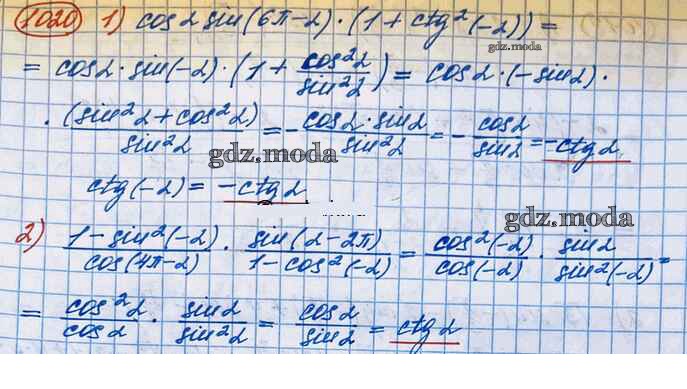 1020 1) cos α sin(6π-α)·(1 + ctg²(-α)) =
gdz.moda
= cos α · sin(-α) · (1 + cos²α/sin²α) = cos α · (-sin α) ·
· (sin²α + cos²α)/sin²α = - cos α · sin α/sin²α = - cos α/sin α = -ctg α
gdz.moda
ctg(-α) = -ctg α
gdz.moda
2) 1 - sin²(-α)/cos(4π-α) · sin(α-2π)/1 - cos²(-α) = cos²(-α)/cos(-α) · sin α/sin²(-α) =
= cos²α/cos α · sin α/sin²α = cos α/sin α = ctg α